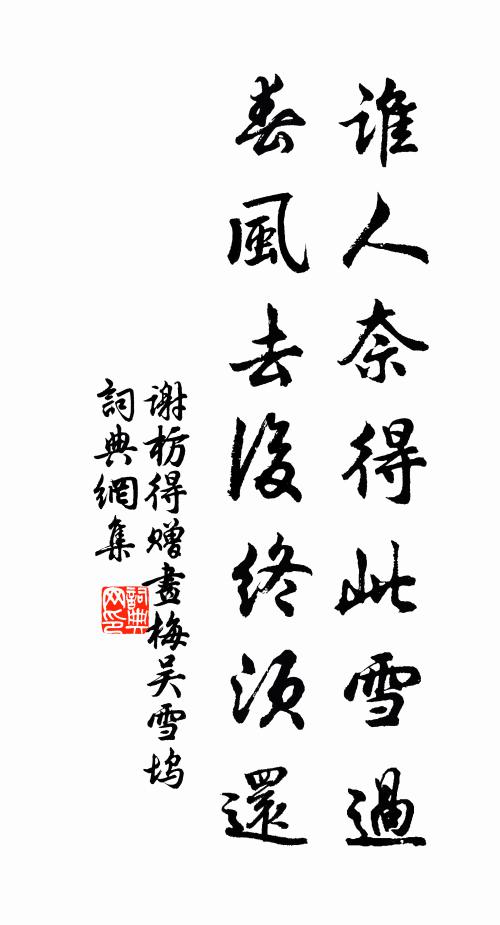 誰人奈得此雪過
春風去後終須還
谢枋得赠畫梅吴雪坞
詞典網集
詞典网印